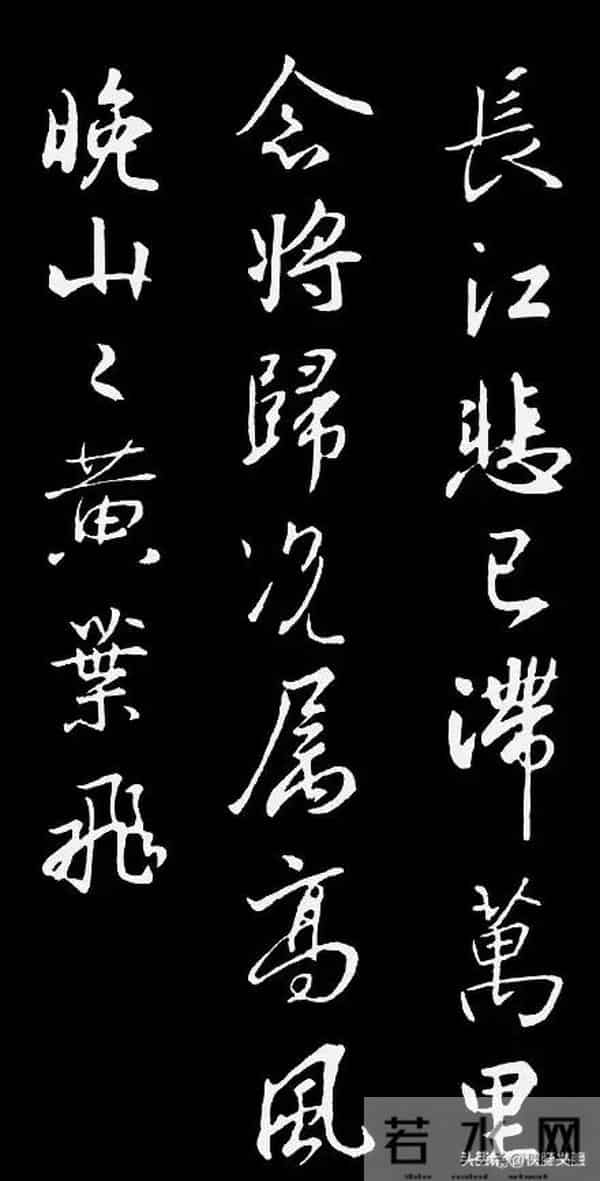 長江悲已滯萬里
念將歸況属高風
晚山〻黃葉飛
若水网
头条